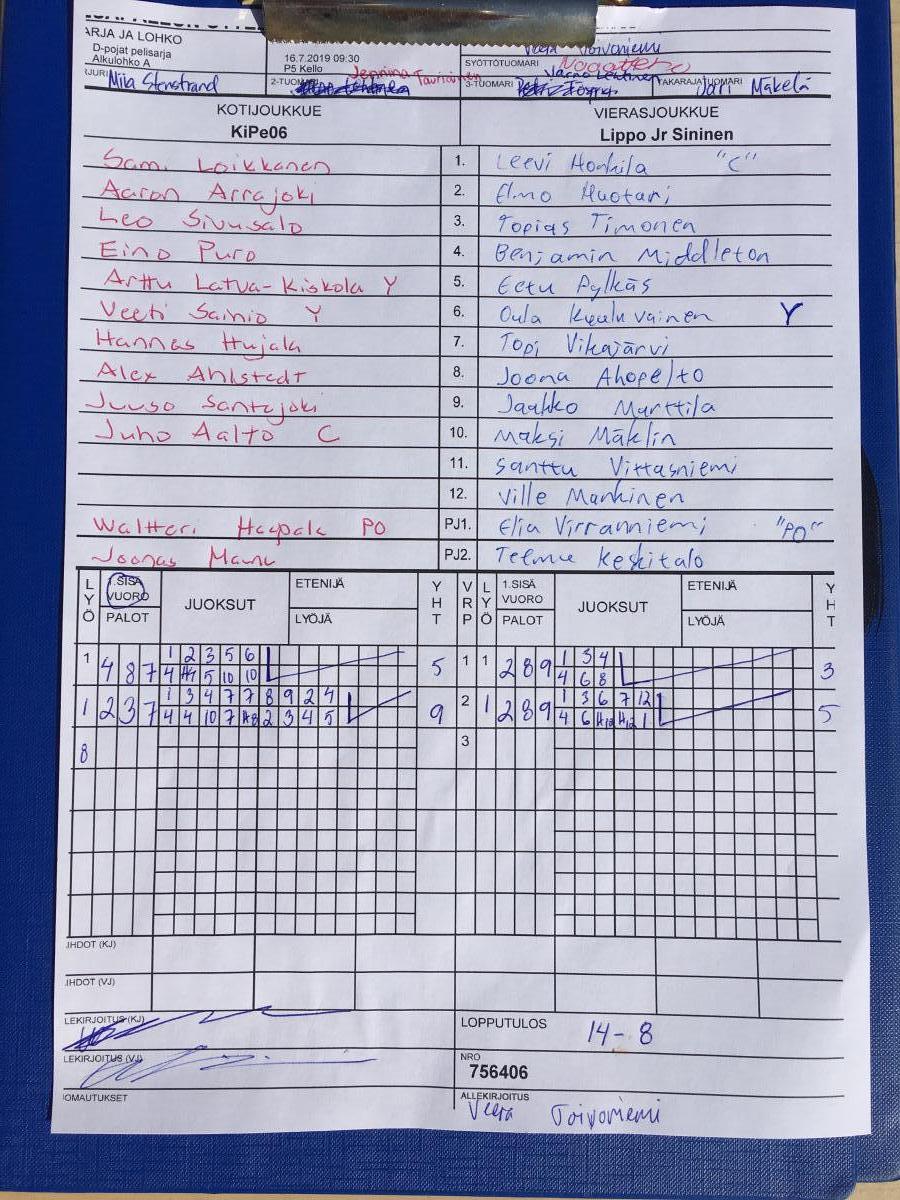 ARJA JA LOHKO
D-pojat pelisarja
Alkulohko A
16.7.2019 09:30
P5 Kello
SYÖTTÖTUOMARI
2-TUOMARI Jennina
3-TUOMARI
TAKARAJATUOMARI Jari Mäkelä
KOTIJOUKKUE VIERASJOUKKUE
KiPe06 Lippo Jr Sininen
Sami Loikkanen 1. Leevi Honkila "C"
Aaron Arrajoki 2. Elmo Huotari
Leo Sivusalo 3. Topias Timonen
Eino Puro 4. Benjamin Middleton
Arttu Latva-Kiskola Y 5. Eetu Pylkäs
Veeti Sainio Y 6. Oula Y
Hannes Hujala 7. Topi Vikajärvi
Alex Ahlstedt 8. Joona Ahopelto
Juuso Santajoki 9. Jaakko Marttila
Juho Aalto C 10. Maksi Mäklin
11. Santtu Vittasniemi
12. Ville Manninen
Waltteri Haapala PO PJ1. Elia Virranniemi "PO"
Joonas PJ2. Teemu Keskitalo
LYÖ 1.SISÄ VUORO PALOT JUOKSUT ETENIJÄ LYÖJÄ YHT VRP LYÖ 1.SISÄ VUORO PALOT JUOKSUT ETENIJÄ LYÖJÄ YHT
1 4 8 7 1 2 3 5 6 5 1 1 2 8 9 1 3 4 3
4 H4 5 10 10 4 6 8
1 2 3 7 1 3 4 7 7 8 9 2 4 9 2 1 2 8 9 1 3 6 7 12 5
4 4 10 7 H8 2 3 4 5 4 6 H12 H12 1
8 3
JHDOT (KJ)
JHDOT (VJ)
LEKIRJOITUS (KJ) LOPPUTULOS 14-8
LEKIRJOITUS (VJ) NRO
756406
OMAUTUKSET ALLEKIRJOITUS
Veera Toivoniemi